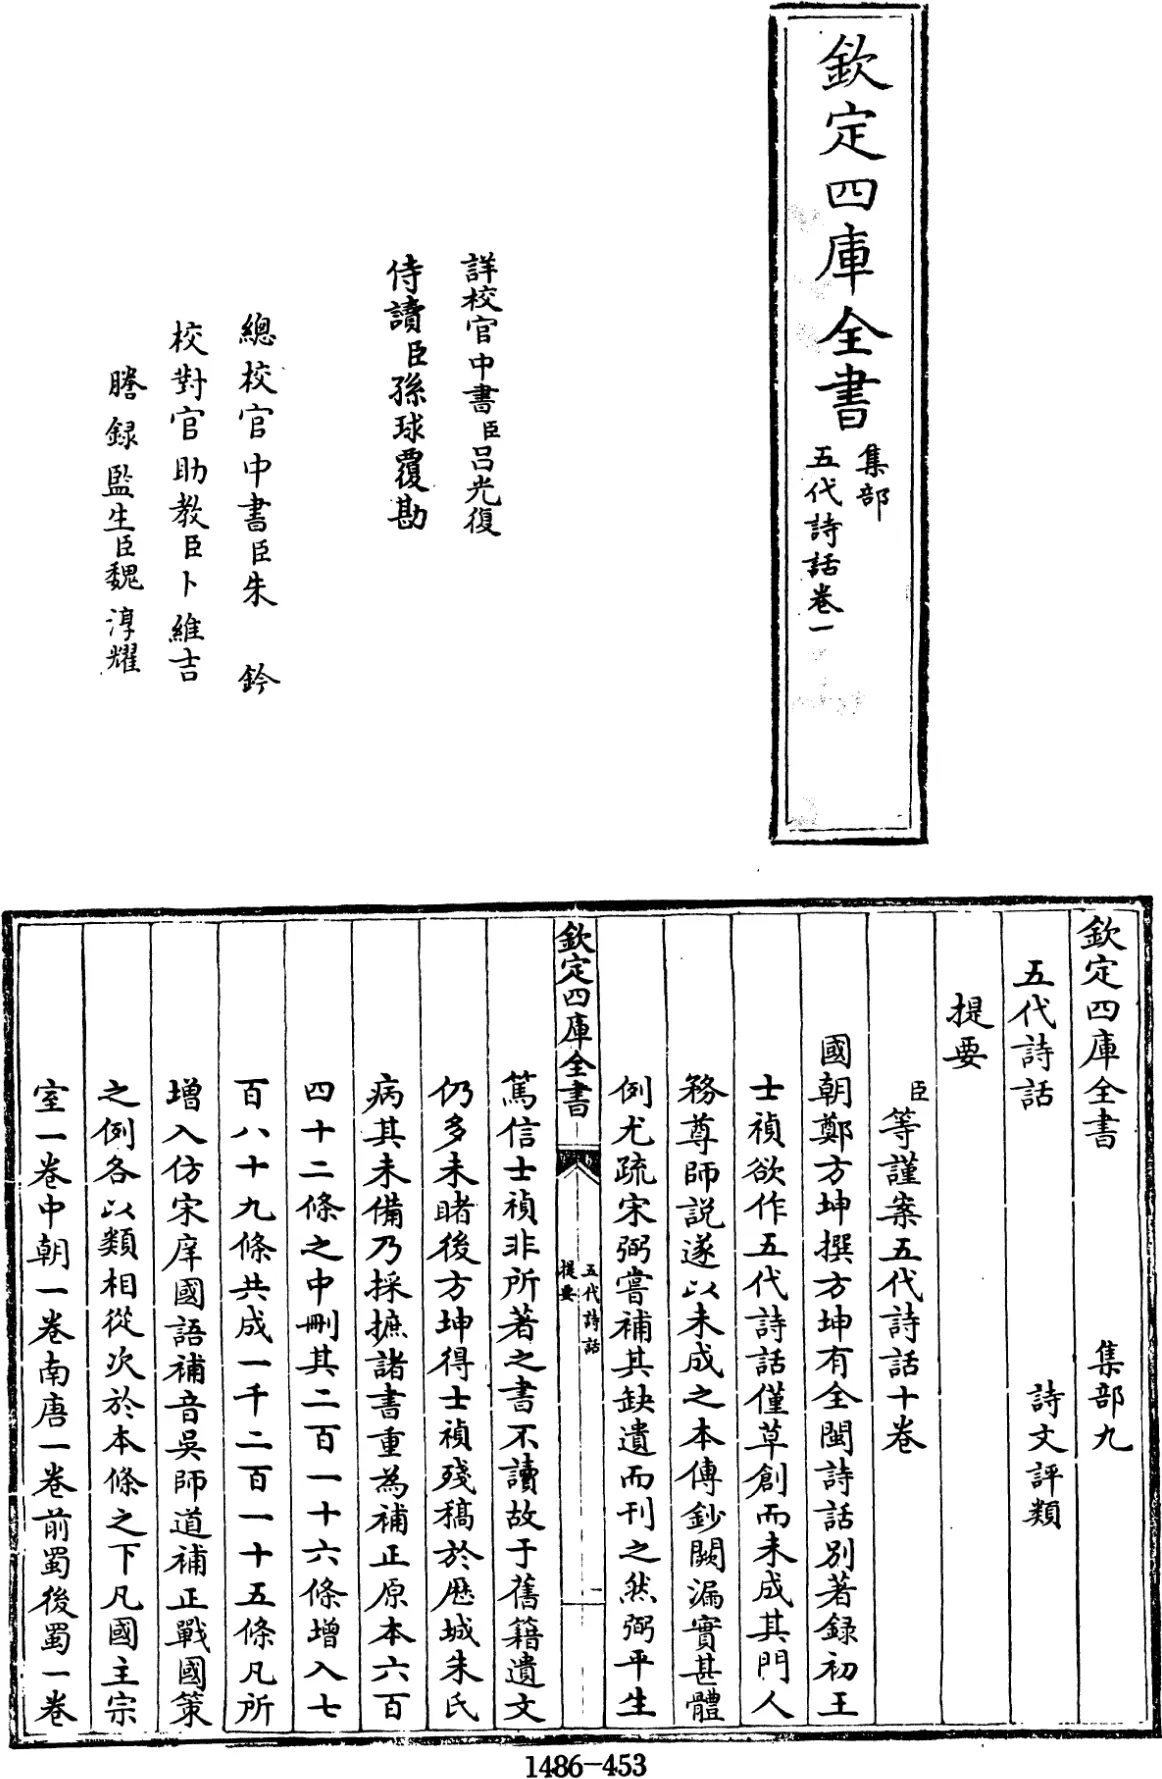 欽定四庫全書
集部
五代詩話卷一
詳校官中書臣呂光復
侍讀臣孫球覆勘
總校官中書臣朱鈐
校對官助教臣卜維吉
謄錄監生臣魏淳耀
欽定四庫全書 集部九
五代詩話 詩文評類
提要
臣等謹案五代詩話十卷
國朝鄭方坤撰方坤有全閩詩話別著錄初王
士禎欲作五代詩話僅草創而未成其門人
務尊師說遂以未成之本傳鈔闕漏實甚體
例尤疏宋弼嘗補其缺遺而刊之然弼平生
欽定四庫全書
五代詩話
提要
一
篤信士禎非所著之書不讀故于舊籍遺文
仍多未睹後方坤得士禎殘稿於歷城朱氏
病其未備乃採摭諸書重為補正原本六百
四十二條之中刪其二百一十六條增入七
百八十九條共成一千二百一十五條凡所
增入仿宋庠國語補音吳師道補正戰國策
之例各以類相從次於本條之下凡國主宗
室一卷中朝一卷南唐一卷前蜀後蜀一卷
1486-453